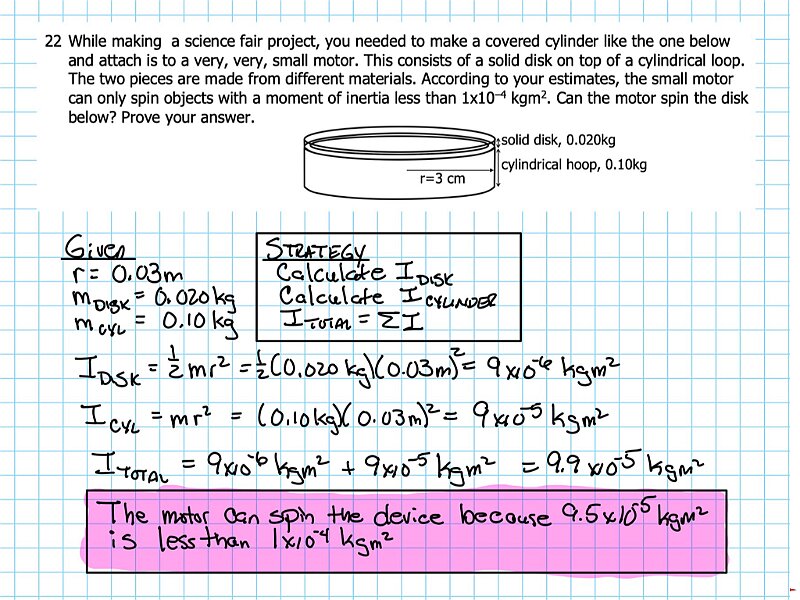 22 While making a science fair project, you needed to make a covered cylinder like the one below
and attach is to a very, very, small motor. This consists of a solid disk on top of a cylindrical loop.
The two pieces are made from different materials. According to your estimates, the small motor
can only spin objects with a moment of inertia less than 1x10⁻⁴ kgm². Can the motor spin the disk
below? Prove your answer.
solid disk, 0.020kg
cylindrical hoop, 0.10kg
r=3 cm
Given
r = 0.03m
m DISK = 0.020 kg
m CYL = 0.10 kg
STRATEGY
Calculate I DISK
Calculate I CYLINDER
I TOTAL = ΣI
I DSK = ½mr² = ½(0.020 kg)(0.03m)² = 9x10⁻⁶ kgm²
I CYL = mr² = (0.10kg)(0.03m)² = 9x10⁻⁵ kgm²
I TOTAL = 9x10⁻⁶ kgm² + 9x10⁻⁵ kgm² = 9.9x10⁻⁵ kgm²
The motor can spin the device because 9.5x10⁻⁵ kgm²
is less than 1x10⁻⁴ kgm²